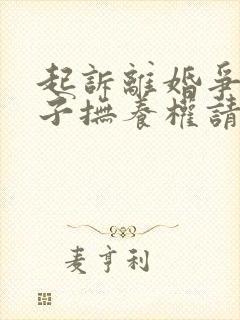 起訴離婚爭
子撫養權請
麦亨利